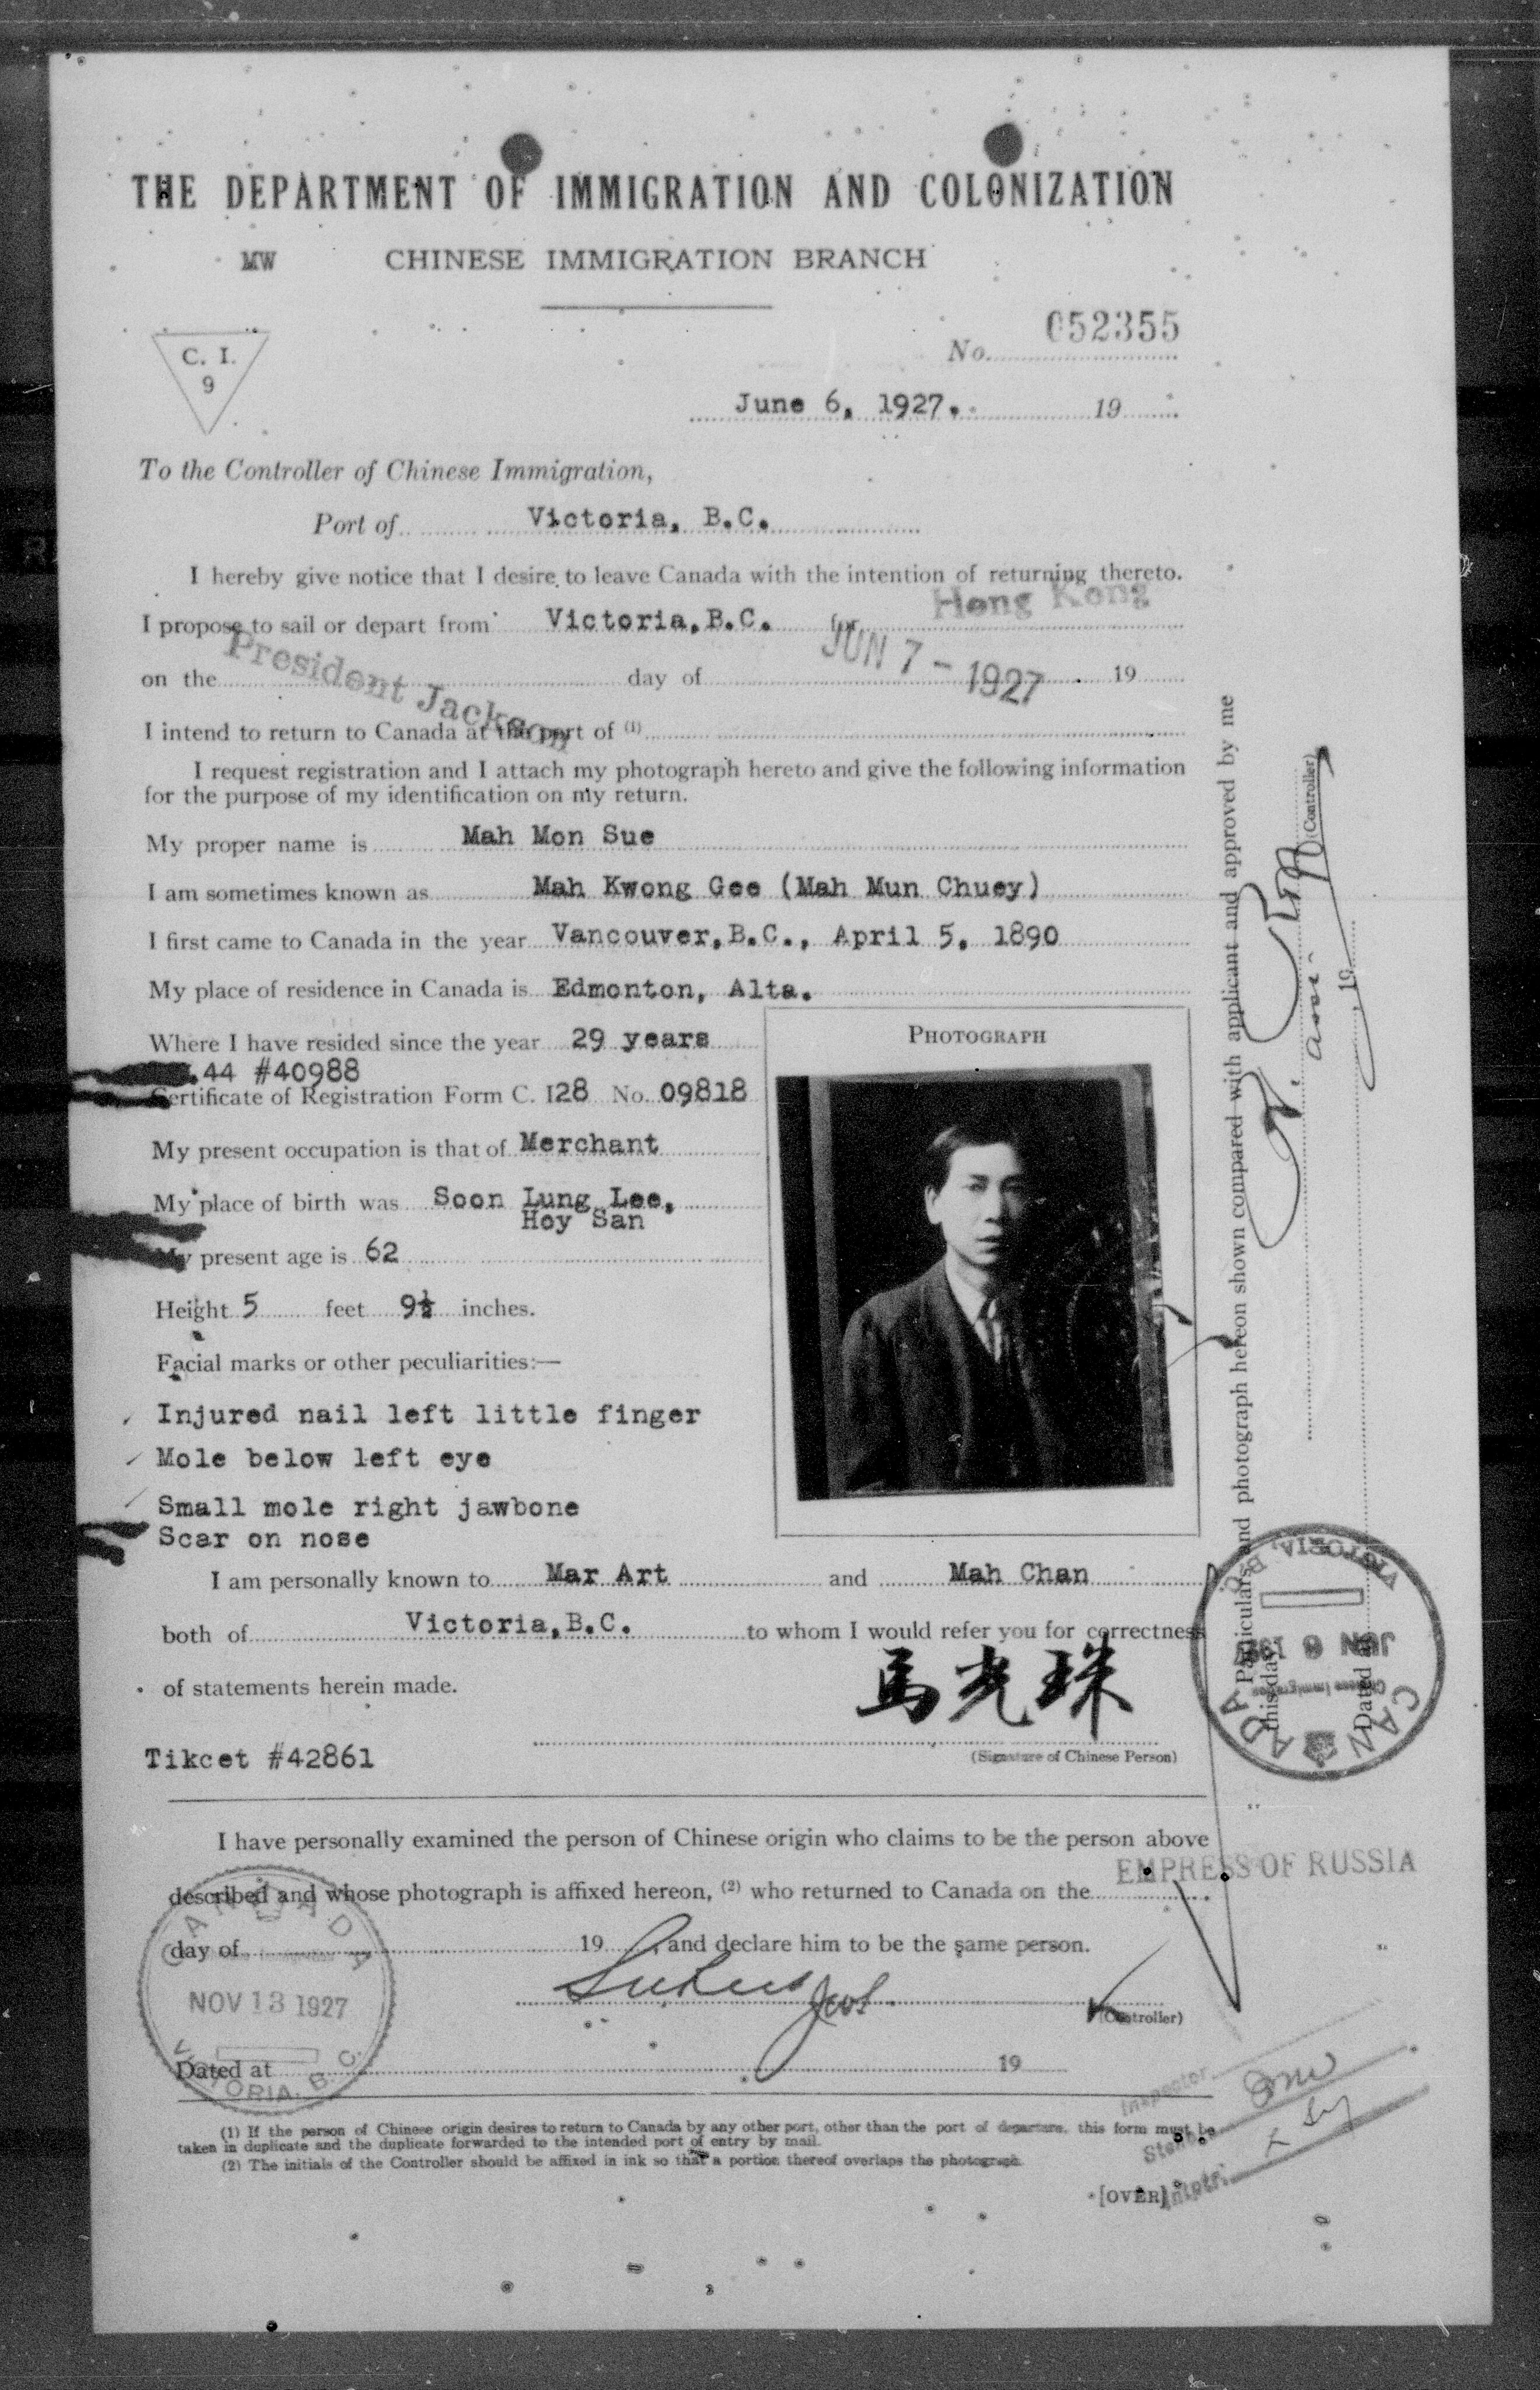 THE DEPARTMENT OF IMMIGRATION AND COLONIZATION
MW CHINESE IMMIGRATION BRANCH
C. I.
9
No. 052355
June 6, 1927. 19
To the Controller of Chinese Immigration,
Port of Victoria, B.C.
I hereby give notice that I desire to leave Canada with the intention of returning thereto.
I propose to sail or depart from Victoria, B.C. for Hong Kong
on the President Jackson day of JUN 7 - 1927 19
I intend to return to Canada at the port of (1)
I request registration and I attach my photograph hereto and give the following information
for the purpose of my identification on my return.
My proper name is Mah Mon Sue
I am sometimes known as Mah Kwong Gee (Mah Mun Chuey)
I first came to Canada in the year Vancouver, B.C., April 5, 1890
My place of residence in Canada is Edmonton, Alta.
Where I have resided since the year 29 years
44 #40988
Certificate of Registration Form C. I28 No. 09818
My present occupation is that of Merchant
My place of birth was Soon Lung Lee,
Hoy San
My present age is 62
Height 5 feet 9½ inches.
Facial marks or other peculiarities:—
Injured nail left little finger
Mole below left eye
Small mole right jawbone
Scar on nose
PHOTOGRAPH
I am personally known to Mar Art and Mah Chan
both of Victoria, B.C. to whom I would refer you for correctness
of statements herein made.
馬光珠
(Signature of Chinese Person)
Tikcet #42861
I have personally examined the person of Chinese origin who claims to be the person above
described and whose photograph is affixed hereon, (2) who returned to Canada on the EMPRESS OF RUSSIA
day of 19 and declare him to be the same person.
(Controller)
Dated at 19
CANADA
NOV 13 1927
VICTORIA, B. C.
(1) If the person of Chinese origin desires to return to Canada by any other port, other than the port of departure, this form must be
taken in duplicate and the duplicate forwarded to the intended port of entry by mail.
(2) The initials of the Controller should be affixed in ink so that a portion thereof overlaps the photograph.
[OVER]
Inspector
Steno
Intptr.
Particulars and photograph hereon shown compared with applicant and approved by me
this day
(Controller)
Dated at 19
VICTORIA, B.C.
JUN 6 1927
Chinese Immigration
CANADA